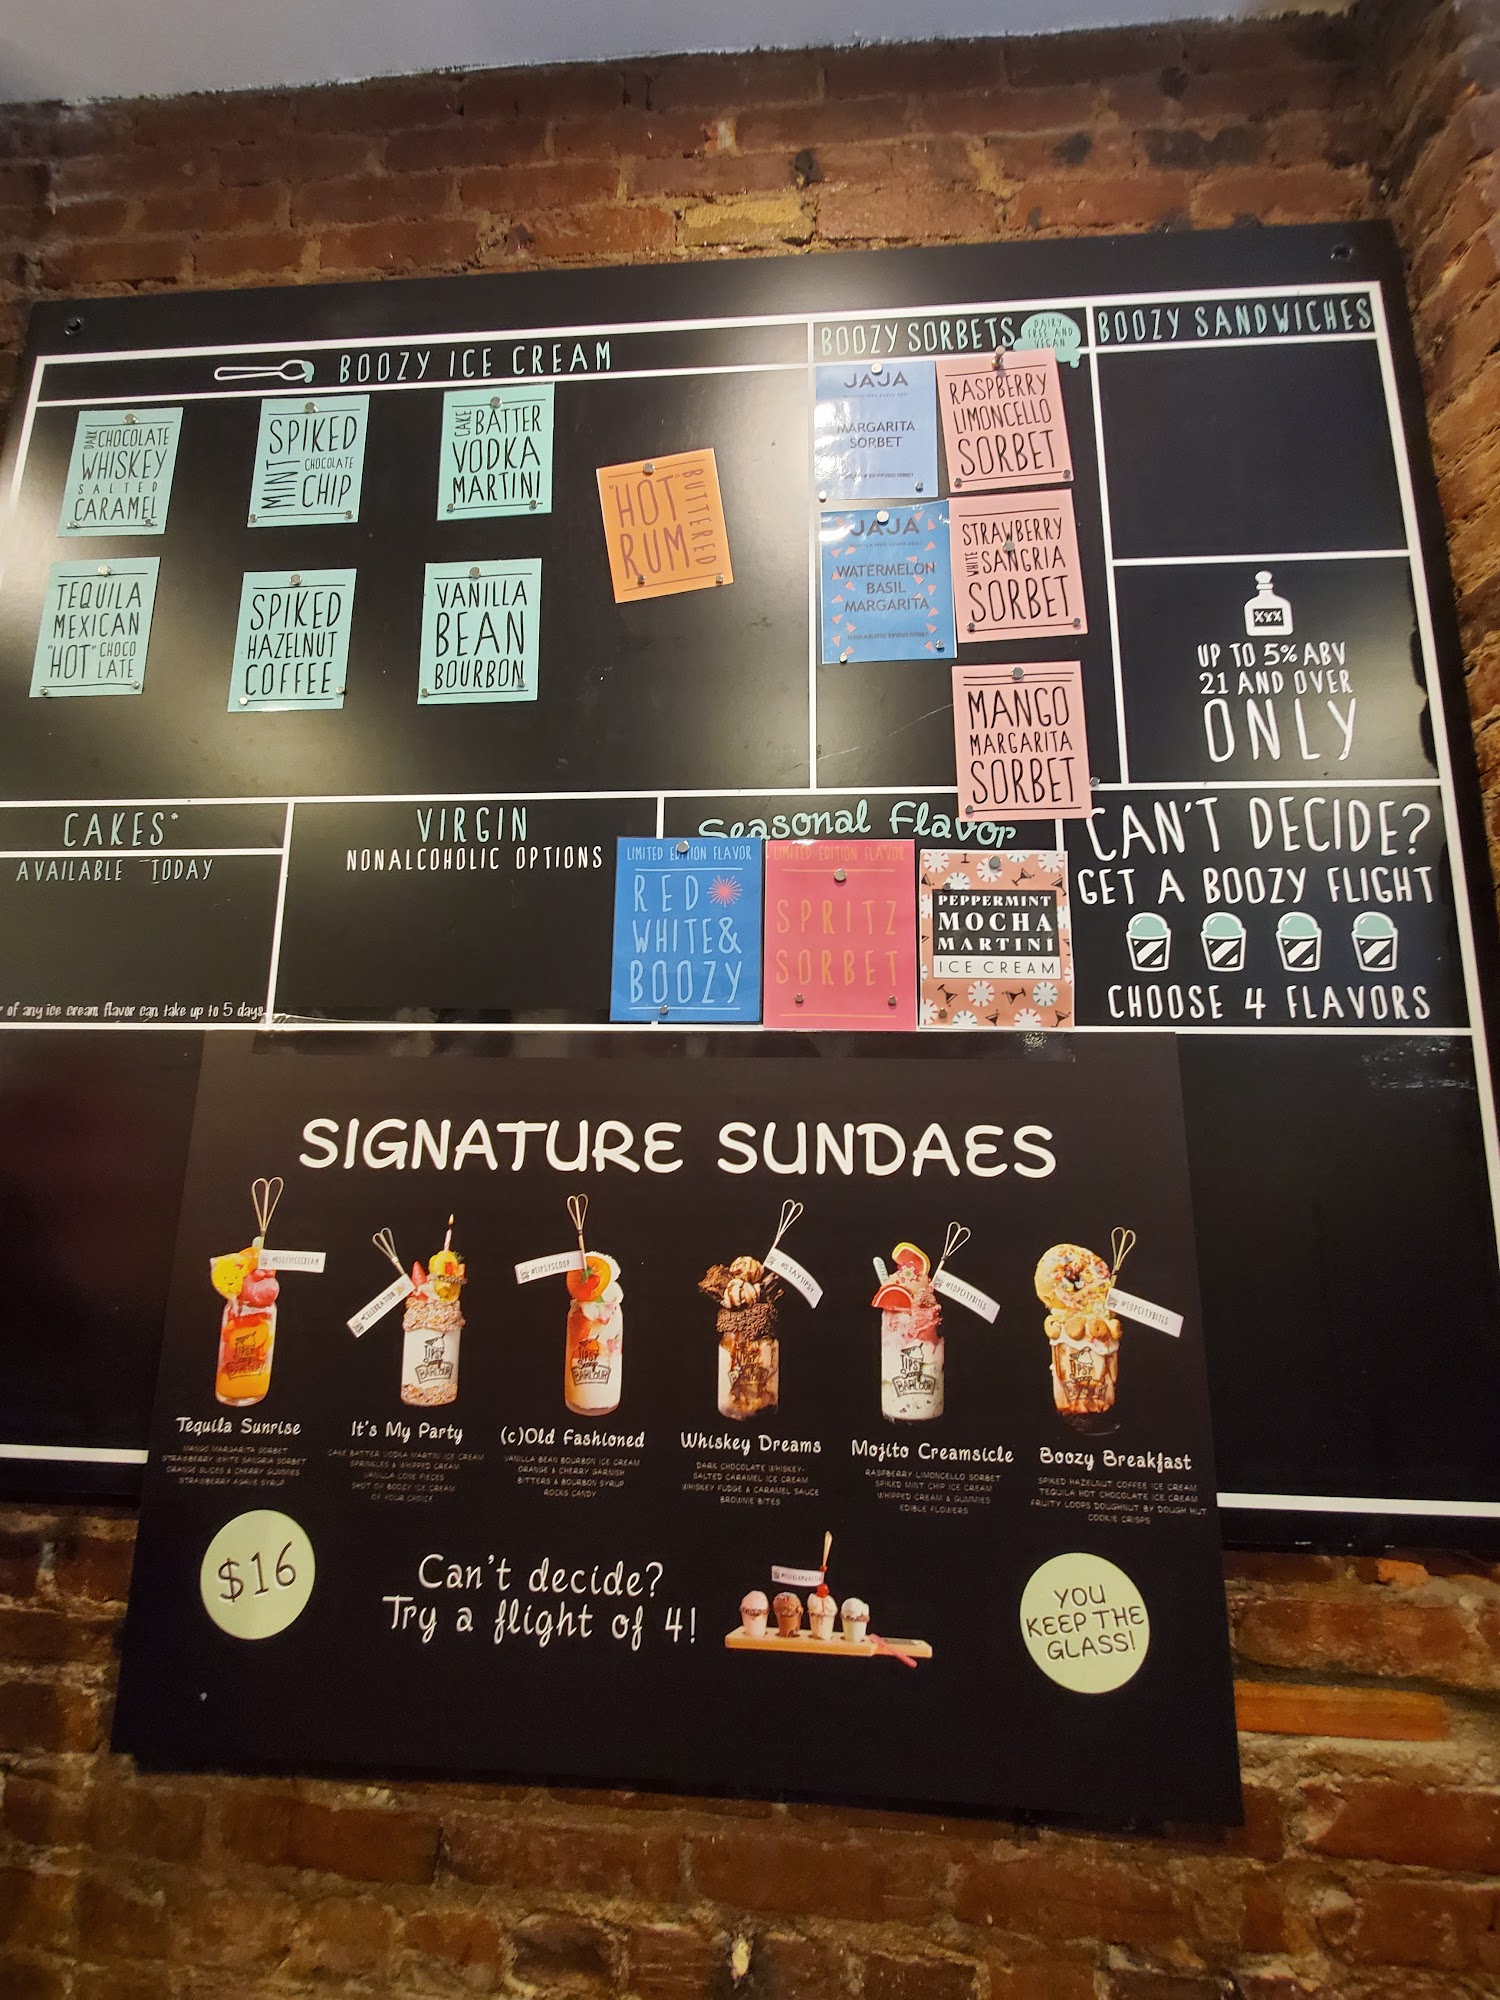 BOOZY ICE CREAM
DARK CHOCOLATE
WHISKEY
SALTED
CARAMEL
SPIKED
MINT CHOCOLATE
CHIP
CAKE BATTER
VODKA
MARTINI
"HOT" BUTTERED
RUM
TEQUILA
MEXICAN
"HOT" CHOCO
LATE
SPIKED
HAZELNUT
COFFEE
VANILLA
BEAN
BOURBON
BOOZY SORBETS
DAIRY
FREE AND
VEGAN
JAJA
MARGARITA
SORBET
RASPBERRY
LIMONCELLO
SORBET
JAJA
WATERMELON
BASIL
MARGARITA
STRAWBERRY
WHITE SANGRIA
SORBET
MANGO
MARGARITA
SORBET
BOOZY SANDWICHES
XXX
UP TO 5% ABV
21 AND OVER
ONLY
CAKES*
AVAILABLE TODAY
of any ice cream flavor can take up to 5 days
VIRGIN
NONALCOHOLIC OPTIONS
Seasonal Flavor
LIMITED EDITION FLAVOR
RED
WHITE &
BOOZY
LIMITED EDITION FLAVOR
SPRITZ
SORBET
PEPPERMINT
MOCHA
MARTINI
ICE CREAM
CAN'T DECIDE?
GET A BOOZY FLIGHT
CHOOSE 4 FLAVORS
SIGNATURE SUNDAES
#BOOZYICECREAM
#CELEBRATION
#TIPSYSCOOP
#STAYTIPSY
#TOPCITYBITES
#TOPCITYBITES
TIPSY
Scoop
BARLOUR
TIPSY
Scoop
BARLOUR
TIPSY
Scoop
BARLOUR
Tequila Sunrise
MANGO MARGARITA SORBET
STRAWBERRY WHITE SANGRIA SORBET
ORANGE SLICES & CHERRY GUMMIES
STRAWBERRY AGAVE SYRUP
It's My Party
CAKE BATTER VODKA MARTINI ICE CREAM
SPRINKLES & WHIPPED CREAM
VANILLA CONE PIECES
SHOT OF BOOZY ICE CREAM
OF YOUR CHOICE
(c)Old Fashioned
VANILLA BEAN BOURBON ICE CREAM
ORANGE & CHERRY GARNISH
BITTERS & BOURBON SYRUP
ROCKS CANDY
Whiskey Dreams
DARK CHOCOLATE WHISKEY-
SALTED CARAMEL ICE CREAM
WHISKEY FUDGE & CARAMEL SAUCE
BROWNIE BITES
Mojito Creamsicle
RASPBERRY LIMONCELLO SORBET
SPIKED MINT CHIP ICE CREAM
WHIPPED CREAM & GUMMIES
EDIBLE FLOWERS
Boozy Breakfast
SPIKED HAZELNUT COFFEE ICE CREAM
TEQUILA HOT CHOCOLATE ICE CREAM
FRUITY LOOPS DOUGHNUT BY DOUGH HUT
COOKIE CRISPS
$16
Can't decide?
Try a flight of 4!
YOU
KEEP THE
GLASS!